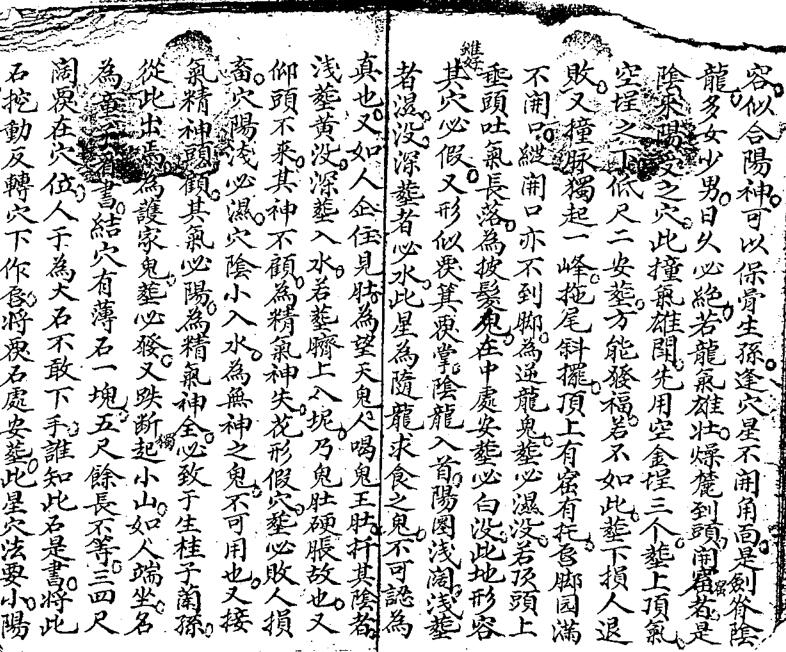 容似合陽神可以保骨生孫逢穴星不開角面是劍脊陰
龍多女少男日久必絕若龍氣雄壯燥麄到頭開窩若是
陰來陽受之穴此撞氣雄閗先用空金埕三个塟上頂氣
空埕之下低尺二安塟方能發福若不如此塟下損人退
敗又撞脉獨起一峰拖尾斜擺頂上有窩有托唇脚园滿
不開口縱開口亦不到脚為逆龍鬼塟必濕没若頂頭上
垂頭吐氣長落為披髮鬼在中處安塟必白没此地形容
其穴必假又形似覄箕覄掌陰龍入首陽圏浅濶浅塟
者濕没深塟者必水此星為隨龍求食之鬼不可認為
真也又如人企侄見肚為望天鬼人喝鬼王肚扞其陰者
浅塟黄没深塟入水若塟臍上入坭乃鬼肚硬脹故也又
仰頭不来其神不顧為精氣神失花形假穴塟必敗人損
畜穴陽浅必濕穴陰小入水為無神之鬼不可用也又接
氣精神頭顧其氣必陽為精氣神全必致于生桂子蘭孫
從此出焉為護家鬼塟必發又跌断起獨小山如人端坐名
為童子看書結穴有薄石一塊五尺餘長不等三四尺
濶覄在穴位人于為大石不敢下手誰知此石是書將此
石挖動反轉穴下作唇將覄石處安塟此星穴法要小陽